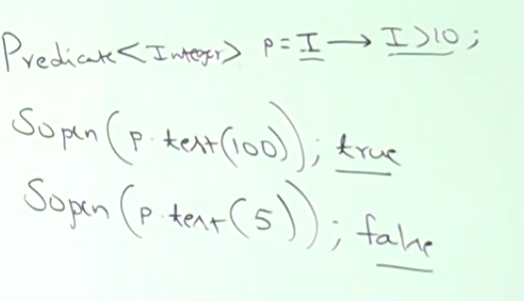 Predicate<Integer> p = I → I>10;
Sopln(p.test(100)); true
Sopln(p.test(5)); false